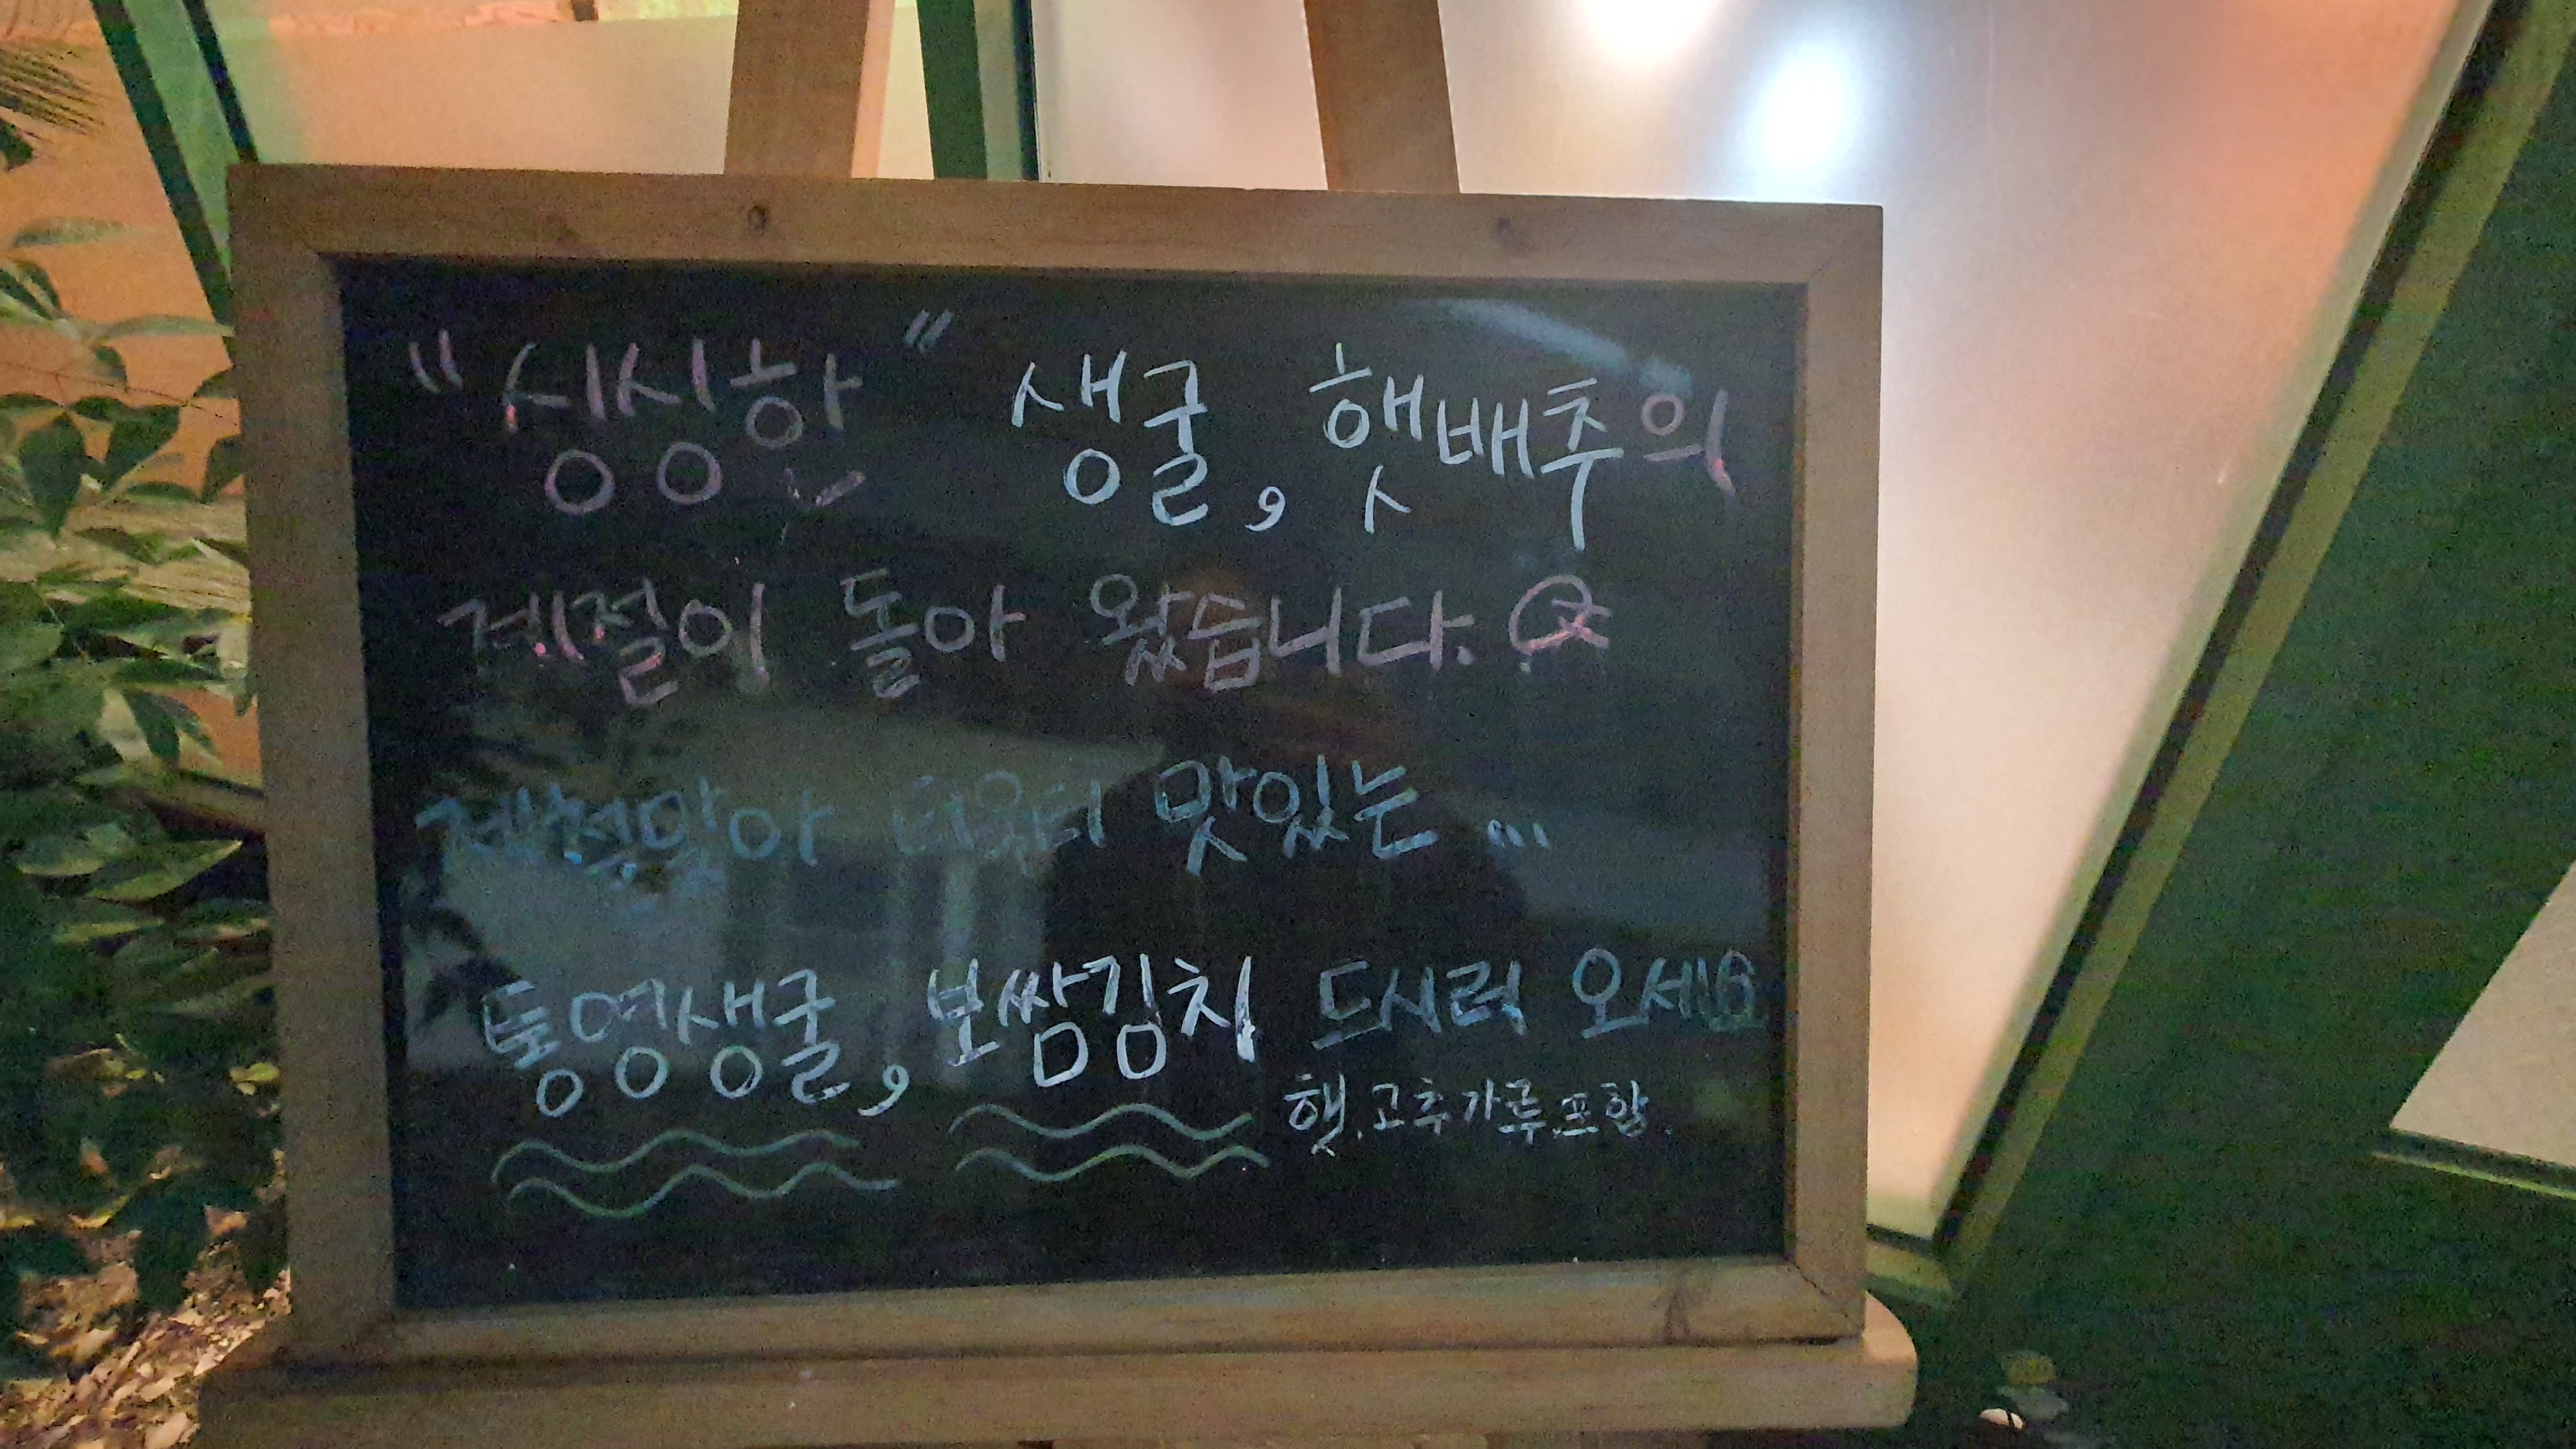 "싱싱한" 생굴, 햇배추의
계절이 돌아 왔습니다.
제철맞아 더욱더 맛있는 ...
통영생굴, 보쌈김치 드시러 오세요
햇.고추가루.포함.